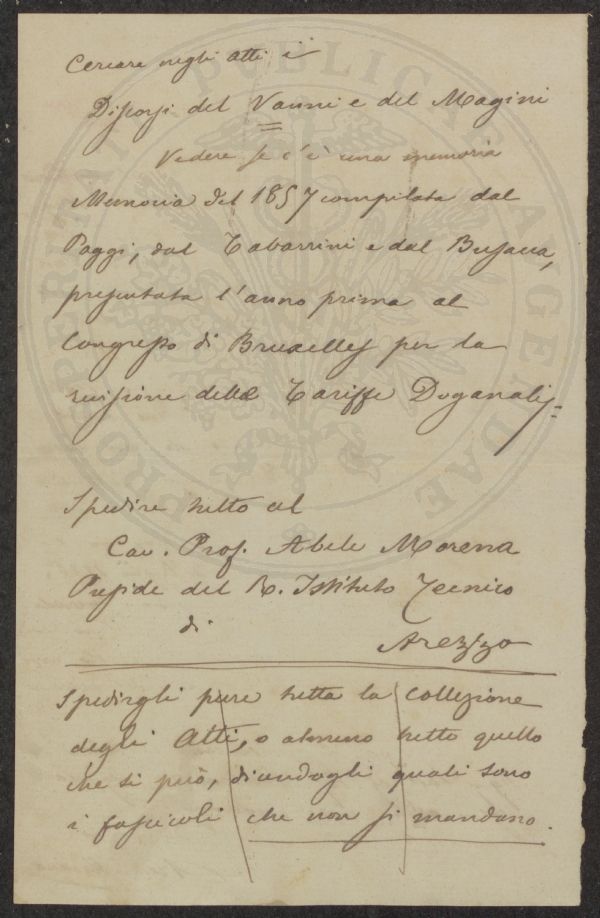 Cercare negli atti i
Discorsi del Vanni e del Magini
Vedere se c'è una memoria
Memoria del 1857 compilata dal
Poggi, dal Tabarrini e dal Busacca,
presentata l'anno prima al
Congresso di Bruxelles per la
revisione delle Tariffe Doganali,=
Spedire tutto al
Cav. Prof. Abele Morena
Preside del R. Istituto Tecnico
di
Arezzo
Spedirgli pure tutta la collezione
degli Atti, o almeno tutto quello
che si può, dicendogli quali sono
i fascicoli che non si mandano.
PROSPERITATI PVBLICAE AVGENDAE